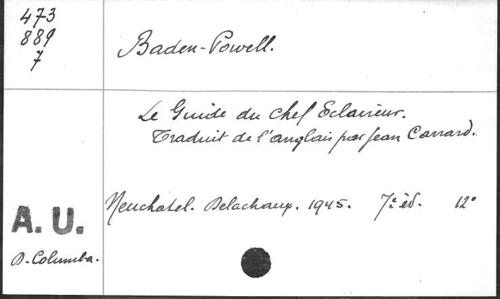 473
889
7
Baden-Powell.
Le Guide du chef Eclaireur.
Traduit de l'anglais par Jean Carrard.
Neuchatel. Delachaux. 1945. 7e éd. 12°
A.U.
D. Columba.